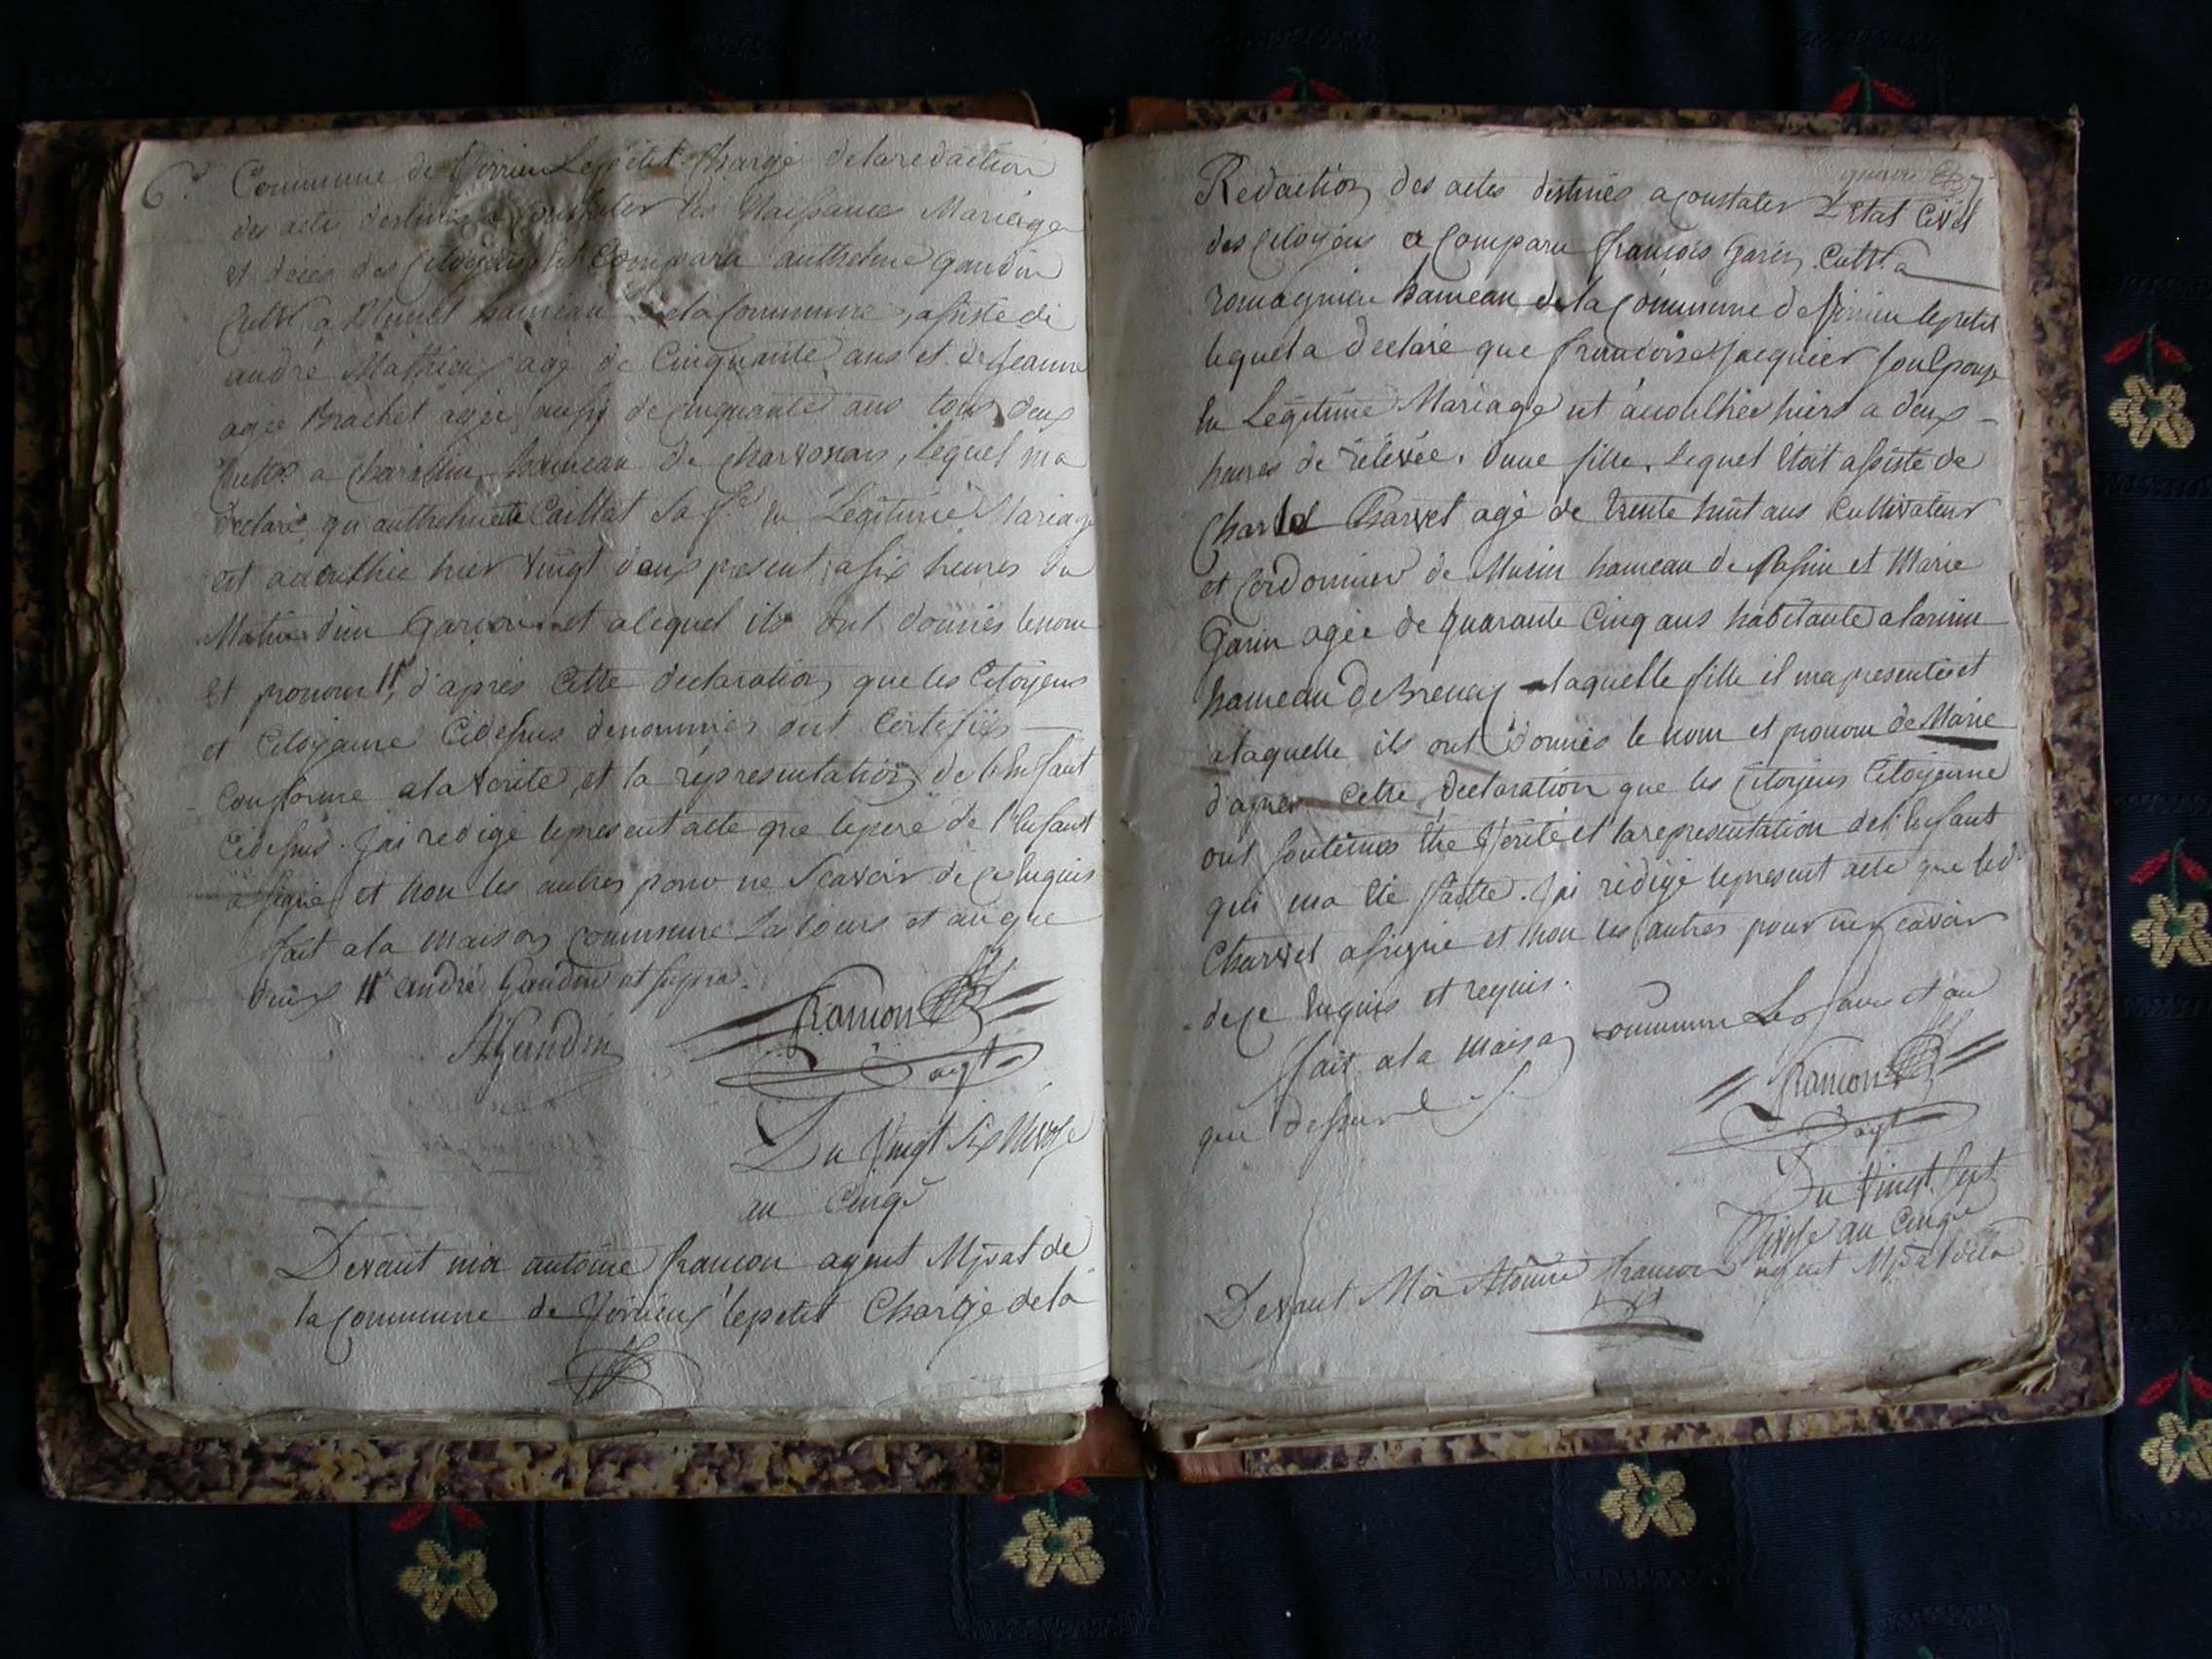 6
Commune de Virieu Lepetit Chargé delaredaction
des actes destinés a Constater les Naissances Mariage
et deces des Citoyens Est Comparu anthelme gaudin
Cultr a hameau dela Commune, assisté de
andré Mathieu agé de Cinquante ans et de jeanne
agée Brachet agée aussy de cinquante ans tous deux
Cultrs a hameau de Lequel ma
Declaré qu'anthelmette Caillat Sa fe en Légitime Mariage
est accouchée hier vingt deux present a six heures du
Matin d'un Garçon et alequel ils ont donnés lenom
et pronom #, d'après Cette declaration que les Citoyens
et Citoyenne Cidessus denommés ont Certifiés
Conforme alaverité, et la représentation de l'Enfant
Cidessus. Jai redigé lepresent acte que lepere de l'Enfant
a signé et Non les autres pour ne Scavoir de ce Enquis
fait ala maison commune Les jours et an que
dessus # andré Gaudin ut supra.
AGaudin
Francon
agt
Du Vingt Six Nivose
an Cinqe
Devant moi antoine francon agent Mpal de
la Commune de Virieux lepetit Chargé dela
7
Redaction des actes destinés a constater L'Etat Civil
des Citoyens a Comparu françois Garin Cultr a
romagnieu hameau dela Commune de Virieu lepetit
lequel a declaré que francoise jacquier son Epouse
en Légitime Mariage est acouchée hiers a deux
heures de rélevée. dune fille, Lequel Etait assisté de
Charles Charvet agé de trente huit ans Cultivateur
et Cordonnier de Munin hameau de Passin et Marie
Garin agée de quarante Cinq ans habitante alarinu
hameau De Brenaz alaquelle fille il ma presentés et
alaquelle ils ont donnés le nom et pronom de Marie
d'après Cette declaration que les Citoyens Citoyenne
ont soutenus Etre Vérité et larepresentation del'Enfant
qui ma Eté faitte. Jai redigé lepresent acte que led
Charvet asigné et Non les autres pour ne scavoir
dece Enquis et requis.
fait ala maison commune Les jours et an
que dessus
Francon
agt
Du Vingt Sept
Nivose an Cinqe
Devant Moi Antoine francon agent Mpal dela